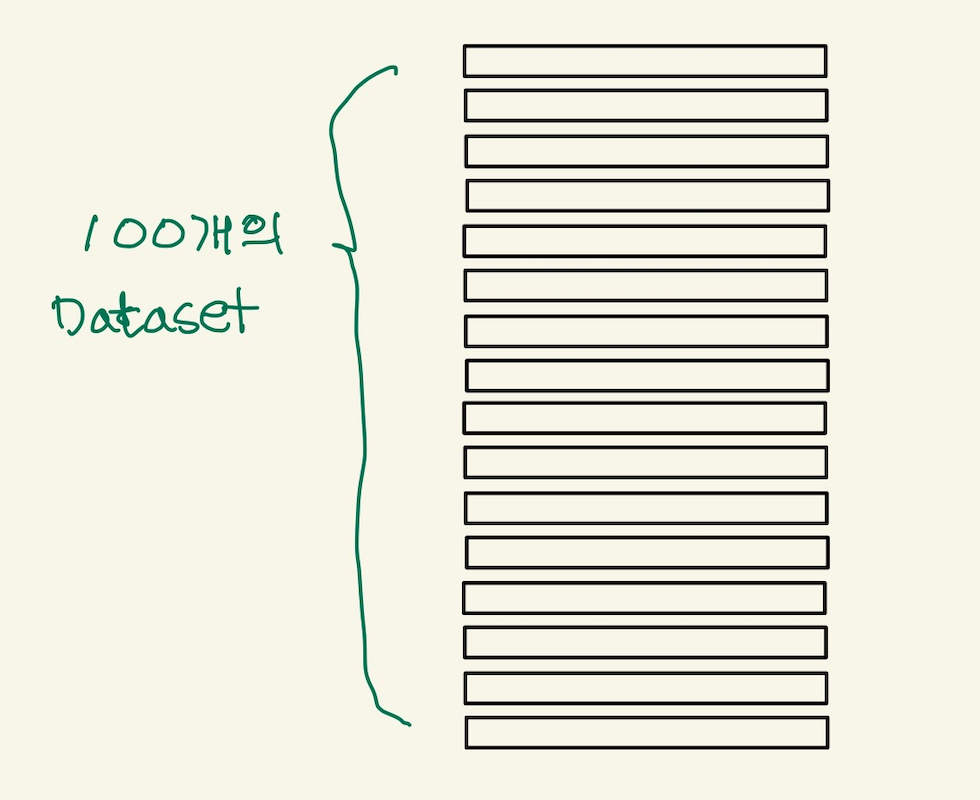 100개의
Dataset